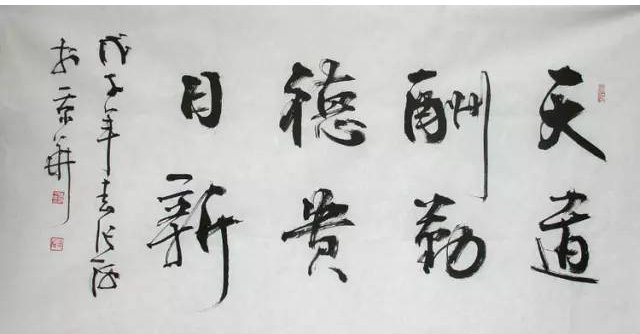 天道
酬勤
德贵
日新
戊子年
京华